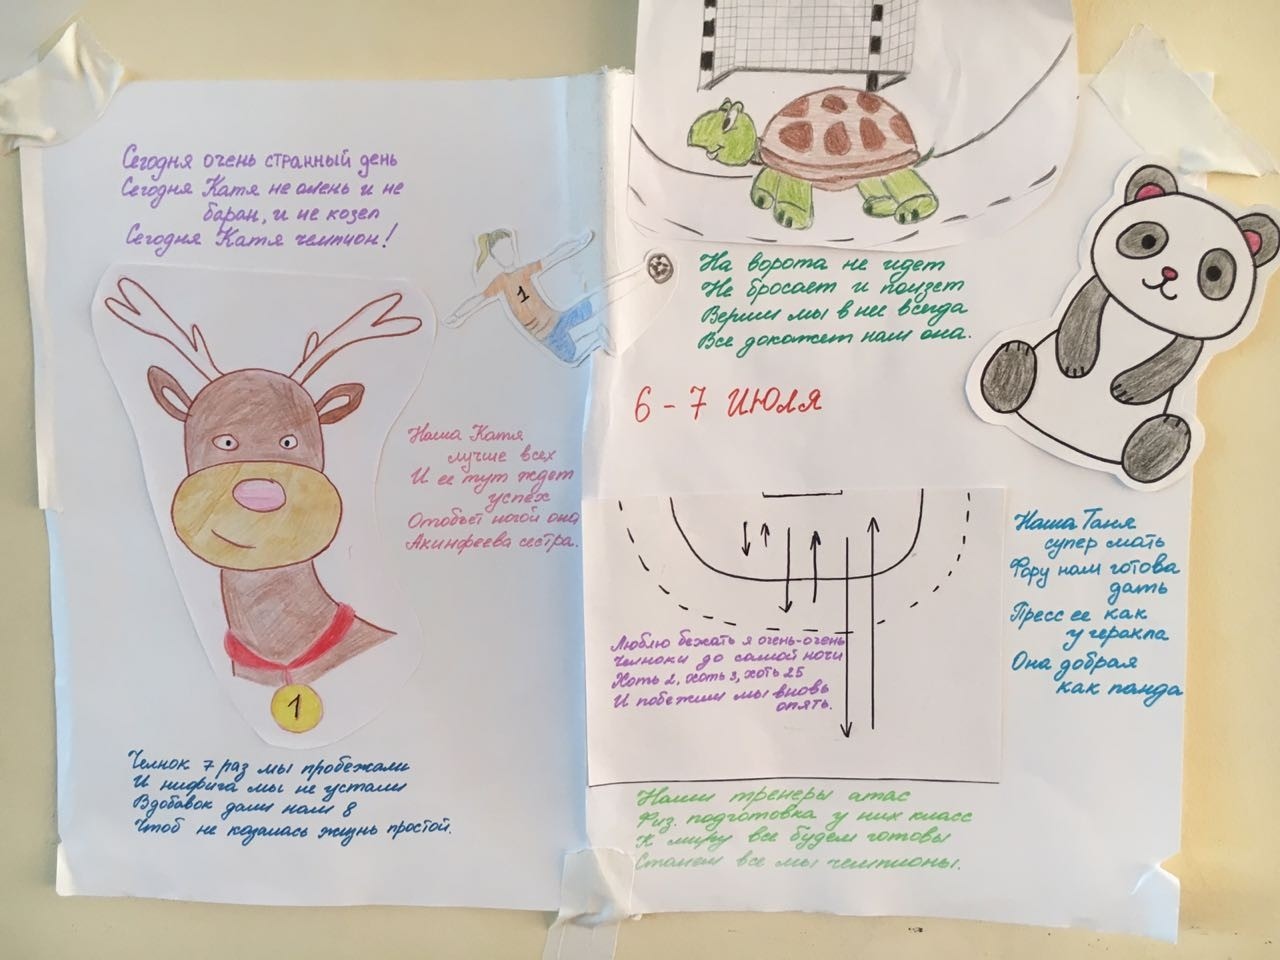 Сегодня очень странный день
Сегодня Катя не олень и не
баран, и не козел
Сегодня Катя чемпион!
1
Наша Катя
лучше всех
И ее тут ждет
успех
Отобьет ногой она
Акинфеева сестра.
1
Челнок 7 раз мы пробежали
И нифига мы не устали
Вдобавок дали нам 8
Чтоб не казалась жизнь простой.
На ворота не идет
Не бросает и ползет
Верим мы в нее всегда
Все докажет нам она.
6 - 7 ИЮЛЯ
Люблю бежать я очень-очень
Челноки до самой ночи
Хоть 2, хоть 3, хоть 25
И побежим мы вновь
опять.
Наша Таня
супер мать
Фору нам готова
дать
Пресс ее как
у геракла
Она добрая
как панда
Наши тренеры атас
Физ. подготовка у них класс
К миру все будем готовы
Станем все мы чемпионы.